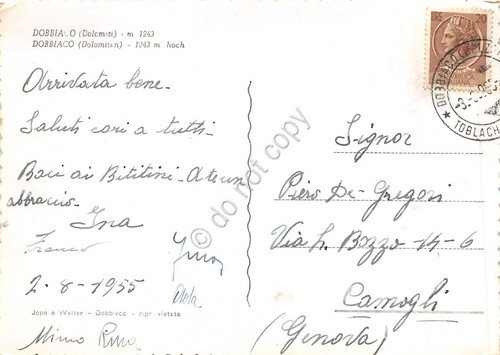 DOBBIACO (Dolomiti) - m 1243
DOBBIACO (Dolomiten) - 1243 m hoch
Arrivata bene -
Saluti cari a tutti -
Baci ai Bititini - A te un
abbraccio -
Ina
Franco
2-8-1955
Jope e Walter - Dobbiaco - ripr vietata
Mimo Rina
Signor
Piero De-Gregori
Via L. Bozzo-14-6
Camogli
(Genova)
20
TOBLACH
do not copy